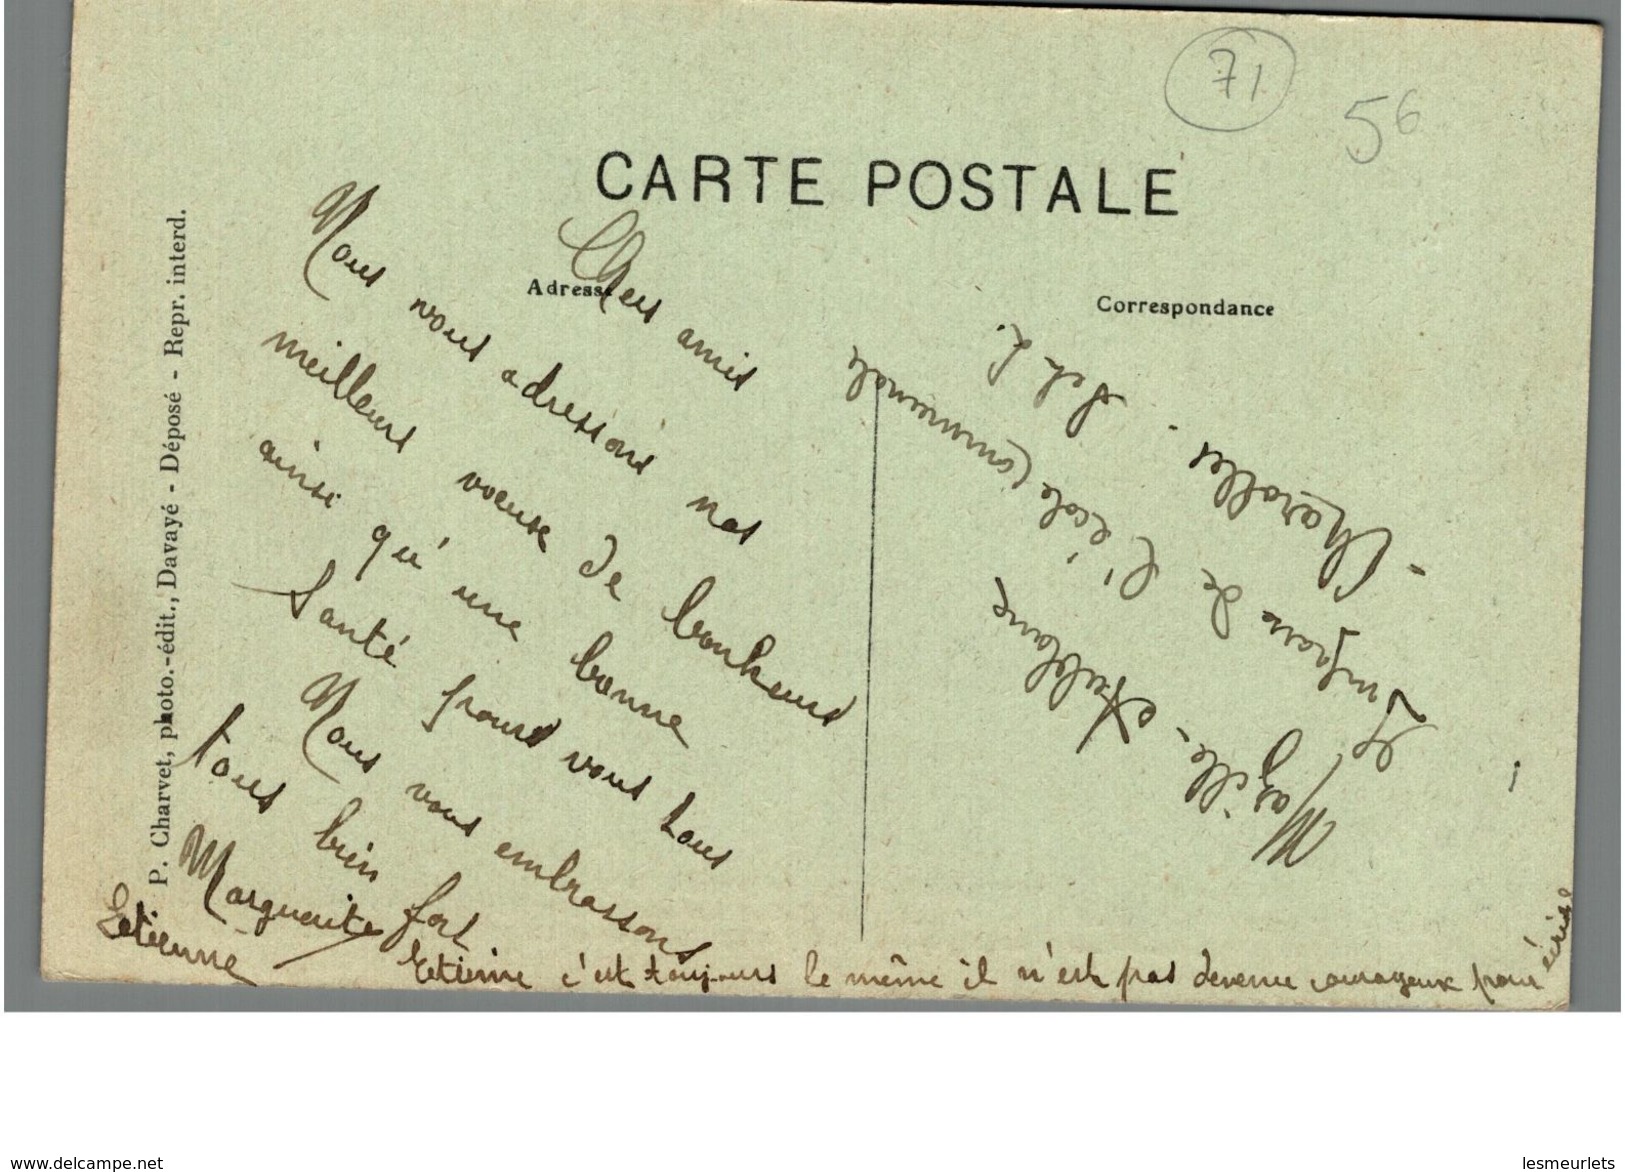 71
56
CARTE POSTALE
Adresse
Correspondance
P. Charvet, photo.-édit., Davayé - Déposé - Repr. interd.
Chers amis
Nous vous adressons nos
meilleurs voeuxe de bonheurs
ainsi qu'une bonne
Santé pours vous tous
Nous vous embrassons
tous bien fort
Marguerite
Etienne
Etienne c'est toujours le même il n'est pas devenu courageux pour écrire
Mazille
Impasse de l'école Communale
- Charolles -
S et L.
www.delcampe.net
lesmeurlets